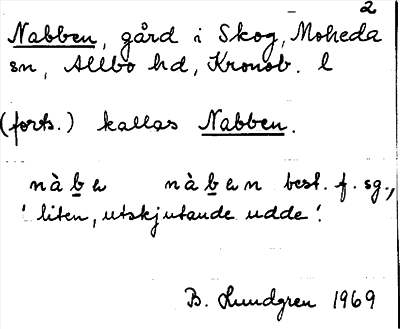 2
Nabben, gård i Skog, Moheda
sn, Allbo hd, Kronob. l
(forts.) kallas Nabben.
nàbə nàbən best. f. sg.,
'liten, utskjutande udde'.
B. Lundgren 1969